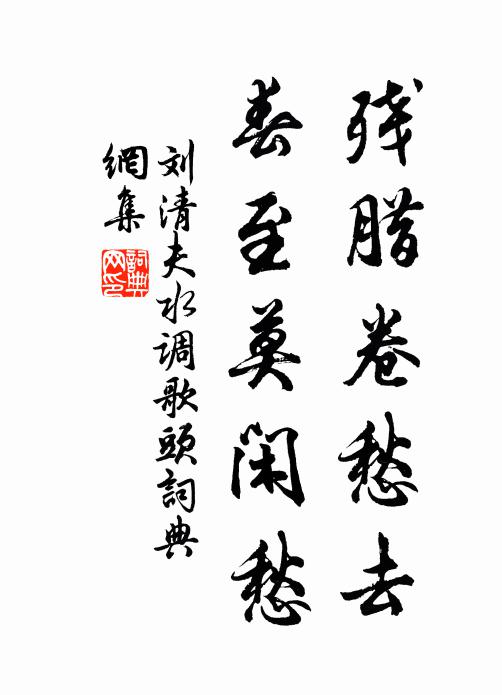 残腊卷愁去
春至莫闲愁
刘清夫水调歌頭詞典
網集
詞典
网印